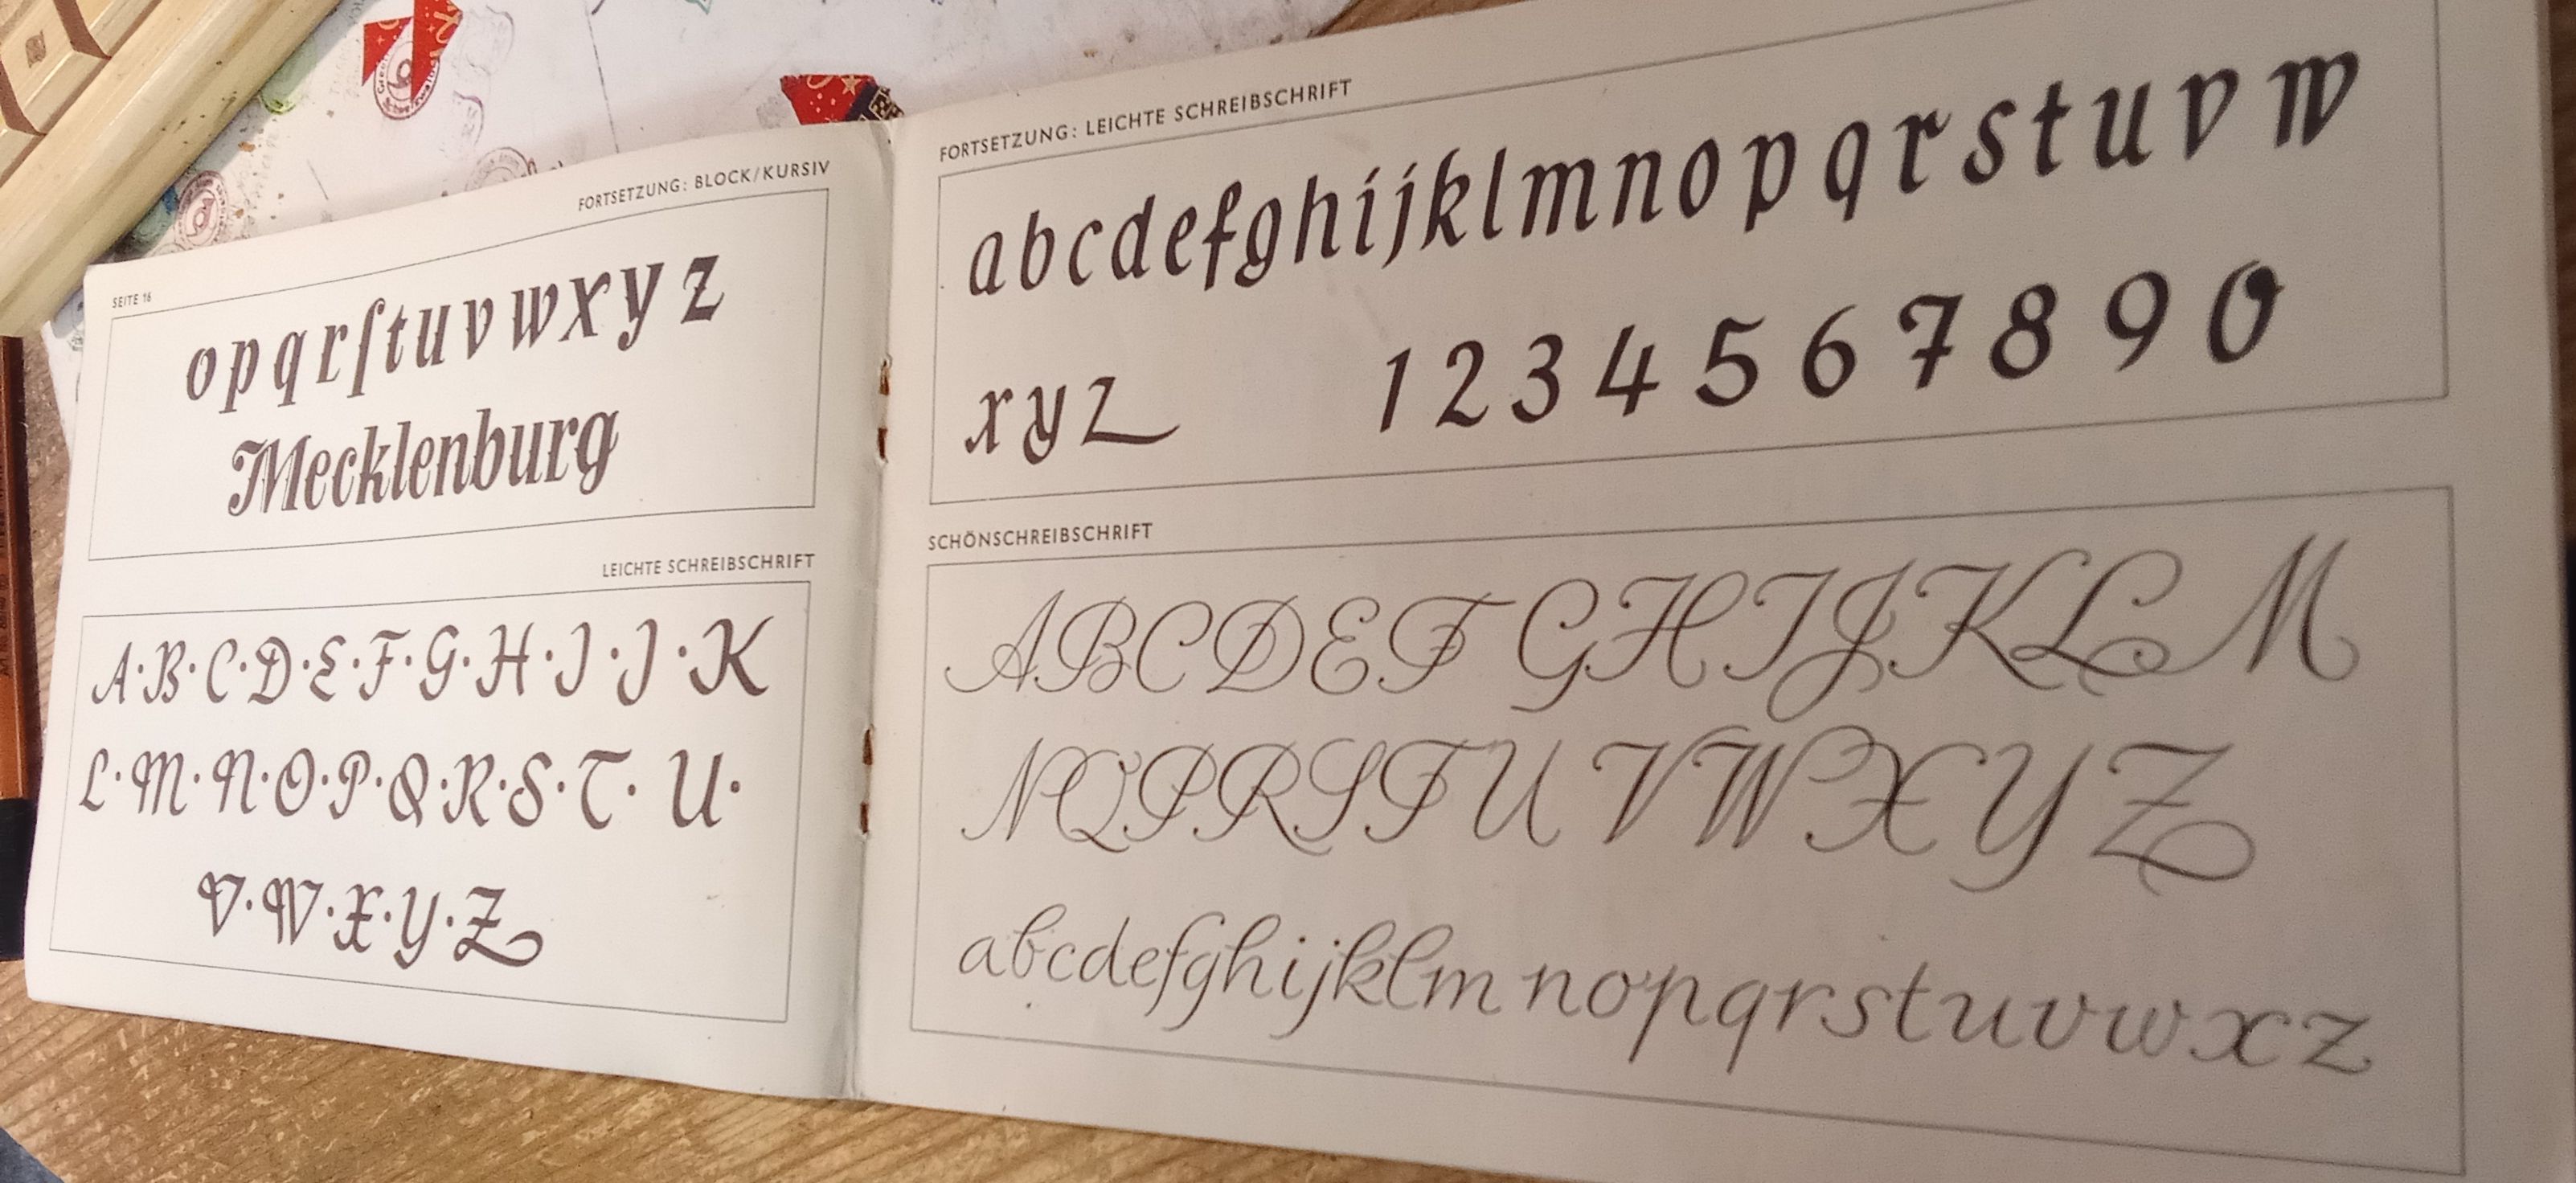 FORTSETZUNG: BLOCK/KURSIV
SEITE 16
o p q r ſ t u v w x y z
Mecklenburg
LEICHTE SCHREIBSCHRIFT
A·B·C·D·E·F·G·H·I·J·K
L·M·N·O·P·Q·R·S·T·U·
V·W·X·Y·Z
FORTSETZUNG: LEICHTE SCHREIBSCHRIFT
a b c d e f g h i j k l m n o p q r s t u v w
x y z 1 2 3 4 5 6 7 8 9 0
SCHÖNSCHREIBSCHRIFT
A B C D E F G H I J K L M
N Q P R S T U V W X Y Z
a b c d e f g h i j k l m n o p q r s t u v w x z